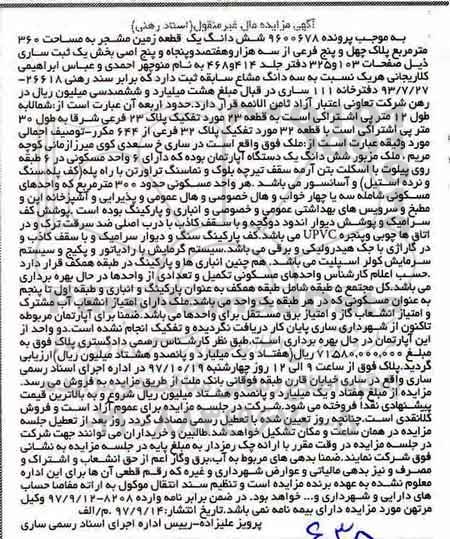 آگهی مزایده مال غیر منقول(اسناد رهنی)
به موجب پرونده ۹۶۰۰۶۷۸ شش دانگ یک قطعه زمین مشجر به مساحت ۳۶۰
مترمربع پلاک چهل و پنج فرعی از سه هزاروهفتصدوپنجاه و پنج اصی بخش یک ثبت ساری
ذیل صفحات ۱۰۳و۳۲۵ دفتر جلد ۴۱۴و۴۶۸ به نام منوچهر احمدی و عباس ابراهیمی
کلاریجانی هریک نسبت به سه دانگ مشاع سابقه ثبت دارد که برابر سند رهنی ۲۶۶۱۸-
۹۳/۷/۲۷ دفترخانه ۱۱۱ ساری در قبال مبلغ هشت میلیارد و ششصدسی میلیون ریال در
رهن شرکت تعاونی اعتبار آزاد ثامن الائمه قرار دارد.حدود اربعه آن عبارت است از:شمالابه
طول ۱۲ متر پی اشتراکی است به قطعه ۲۳ مورد تفکیک پلاک ۲۳ فرعی شرقا به طول ۳۰
متر پی اشتراکی است با قطعه ۳۲ مورد تفکیک پلاک ۳۲ فرعی از ۶۴۴ مکرر-توصیف اجمالی
مورد وثیقه عبارت است از :ملک فوق واقع است در ساری خ سعدی کوی میرزازمانی کوچه
مریم . ملک مزبور شش دانگ یک دستگاه آپارتمان بوده که دارای ۶ واحد مسکونی در ۶ طبقه
روی پیلوت با اسکلت بتن آرمه سقف تیرچه بلوک و نماسنگ تراورتن با راه پله(کف پله سنگ
و نرده استیل) و آسانسور می باشد .هر واحد مسکونی حدود ۳۰۰ مترمربع که واحدهای
مسکونی شامله سه یا چهار خواب و هال خصوصی و هال عمومی و پذیرایی و آشپزخانه اپن و
مطبخ و سرویس های بهداشتی عمومی و خصوصی و انباری و پارکینگ بوده است .پوشش کف
سرامیک و پوشش دیوار اندود دوگچه و با سقف کاذب با درب اصلی ضد سرقت ترک و در
اتاق ها چوبی وپنجره UPVC می باشد.کف پارکینگ سنگ و دیوار سرامیک و با سقف کاذب و
در گاراژی با جک هیدرولیکی و برقی می باشد.سیستم گرمایش با رادیاتور و پکیج و سیستم
سرمایش کولر اسپلیت می باشد. هم چنین انباری ها و پارکینگ در طبقه همکف قرار دارد
.حسب اعلام کارشناس واحدهای مسکونی تکمیل و تعدادی از واحدها در حال بهره برداری
می باشد.کل مجتمع ۵ طبقه شامل طبقه همکف به عنوان پارکینگ و انباری و طبقه اول تا پنجم
به عنوان مسکونی که در هر طبقه یک واحد می باشد.ملک دارای امتیاز انشعاب آب مشترک
و امتیاز انشعاب گاز و امتیاز برق مستقل برای واحدها می باشد.ضمنا برای آپارتمان مربوطه
تاکنون از شهرداری ساری پایان کار دریافت نگردیده و تفکیک انجام نشده است.دو واحد از
این آپارتمان در حال بهره برداری است.طبق نظر کارشناس رسمی دادگستری پلاک فوق به
مبلغ ۷۱۵۸۰,۰۰۰,۰۰۰ ریال(هفتاد و یک میلیارد و پانصدو هشتاد میلیون ریال)ارزیابی
گردید.پلاک فوق از ساعت ۹ الی ۱۲ روز چهارشنبه ۹۷/۱۰/۱۹ در اداره اجرای اسناد رسمی
ساری واقع در ساری خیابان قارن طبقه فوقانی بانک ملت از طریق مزایده به فروش می رسد.
مزایده از مبلغ هفتاد و یک میلیارد و پانصدو هشتاد میلیون ریال شروع و به بالاترین قیمت
پیشنهادی نقدا فروخته می شود.شرکت در جلسه مزایده برای عموم آزاد است و فروش
کلانقدی است.چنانچه روز تعیین شده با تعطیل رسمی مصادف گردد روز بعد از تعطیل جلسه
مزایده در همان ساعت و مکان تشکیل خواهد شد.طالبین و خریداران می توانند جهت شرکت
در جلسه مزایده در وقت مقرر با ارائه چک رمزدار به مبلغ پایه در جلسه مزایده به نشانی
فوق شرکت نمایند.ضمنا بدهی های مربوط به آب،برق وگاز اعم از حق انشعاب و اشتراک و
مصرف و نیز بدهی مالیاتی و عوارض شهرداری و غیره که رقم قطعی آن ها برای این اداره
معلوم نشده به عهده برنده مزایده است و تنظیم سند انتقال موکول به ارائه مفاصا حساب
های دارایی و شهرداری و... خواهد بود. در ضمن برابر نامه وارده ۸۲۰۸-۹۷/۹/۱۲ وکیل
مرتهن مورد مزایده دارای بیمه نامه نمی باشد.تاریخ انتشار:۹۷/۹/۱۴ .م/الف
پرویز علیزاده-رییس اداره اجرای اسناد رسمی ساری